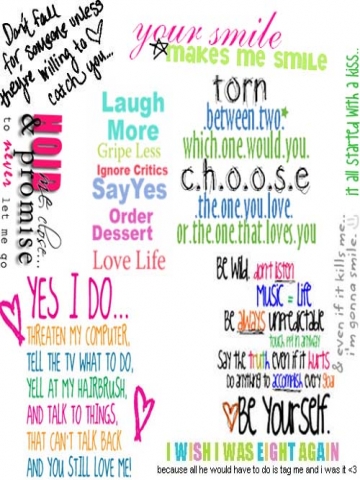 Don't fall
for someone unless
they're willing to
catch you...
your smile
makes me smile
it all started with a kiss.
torn
.between.two.*
which.one.would.you.
c.h.o.o.s.e
.the.one.you.love.
or.the.one.that.loves.you
Laugh
More
Gripe Less
Ignore Critics
SayYes
Order
Dessert
Love Life
HOLD
me close...
& promise
to never let me go
& even if it kills me...
i'm gonna smile. :)
Be Wild. don't listen
MUSIC = Life
Be always unpredictable
touch me in anyway
Say the truth even if it hurts
do anything to accomplish every goal
Be Yourself.
YES I DO...
THREATEN MY COMPUTER,
TELL THE TV WHAT TO DO,
YELL AT MY HAIRBRUSH,
AND TALK TO THINGS,
THAT CAN'T TALK BACK
AND YOU STILL LOVE ME!
I WISH I WAS EIGHT AGAIN
because all he would have to do is tag me and i was it <3